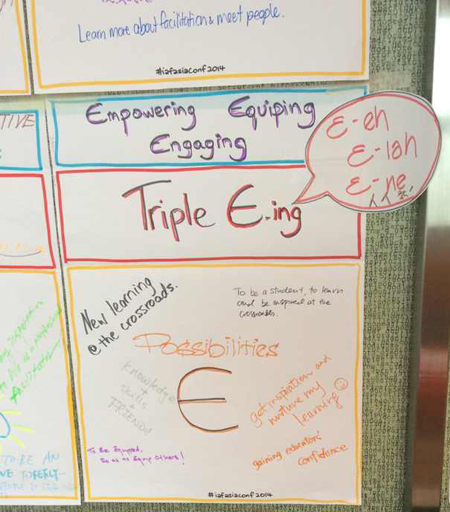 Learn more about facilitation & meet people.
#iafasiaconf2014
TIVE
Empowering Equiping
Engaging
Triple E.ing
E-eh
E-lah
E-ne
New learning
@ the crossroads.
To be a student, to learn
and be inspired at the
crossroads.
Possibilities
Knowledge
+
skills
+
FRIENDS
E
get inspiration and
nurture my
learning
gaining educators'
confidence
To Be Equiped,
So as to Equip Others!
#iafasiaconf2014
TO BE AN